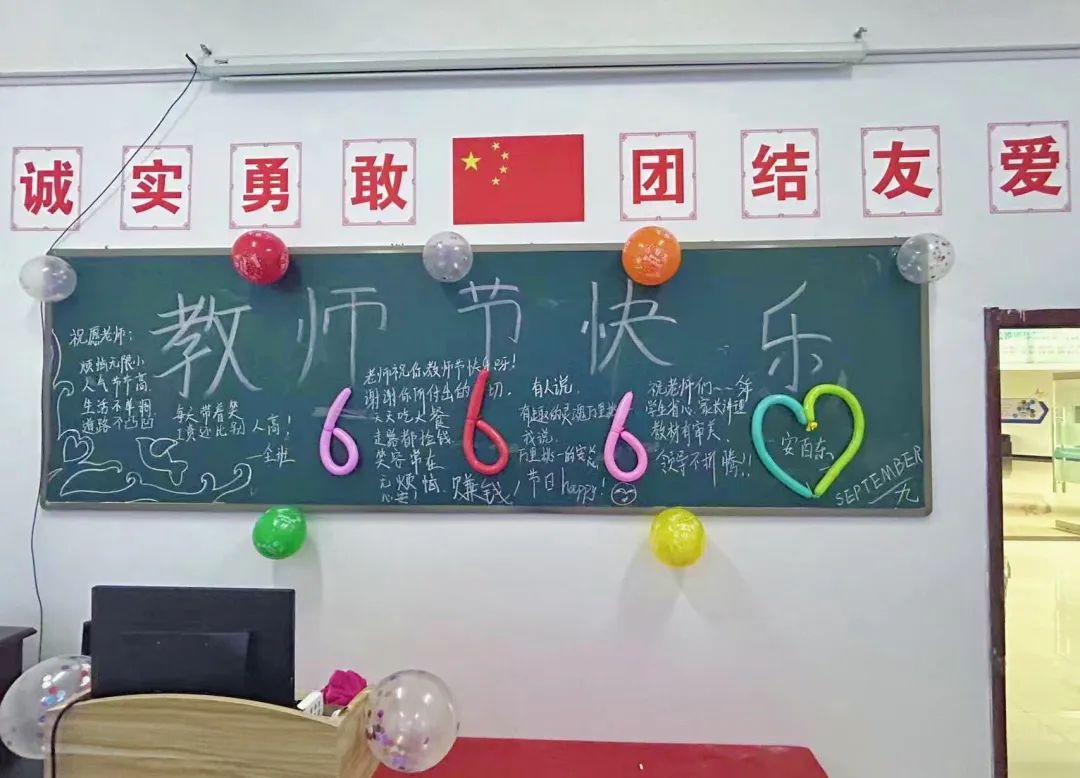 诚实勇敢 团结友爱
教师节快乐
祝愿老师:
烦恼无限小
人气节节高
生活不单调
道路不凸凹
每天带着笑
人高!
一全班
老师祝你教师节快乐呀!
谢谢你所付出的一切.
天天吃大餐
走路都捡钱
笑容常在
无烦恼
赚钱!
666
有人说,
有趣的灵魂万里挑一
我说,
节日happy!
祝老师们
学生省心.家长讲理
教材有审美.
领导不折腾!!
安百东
SEPTEMBER
九